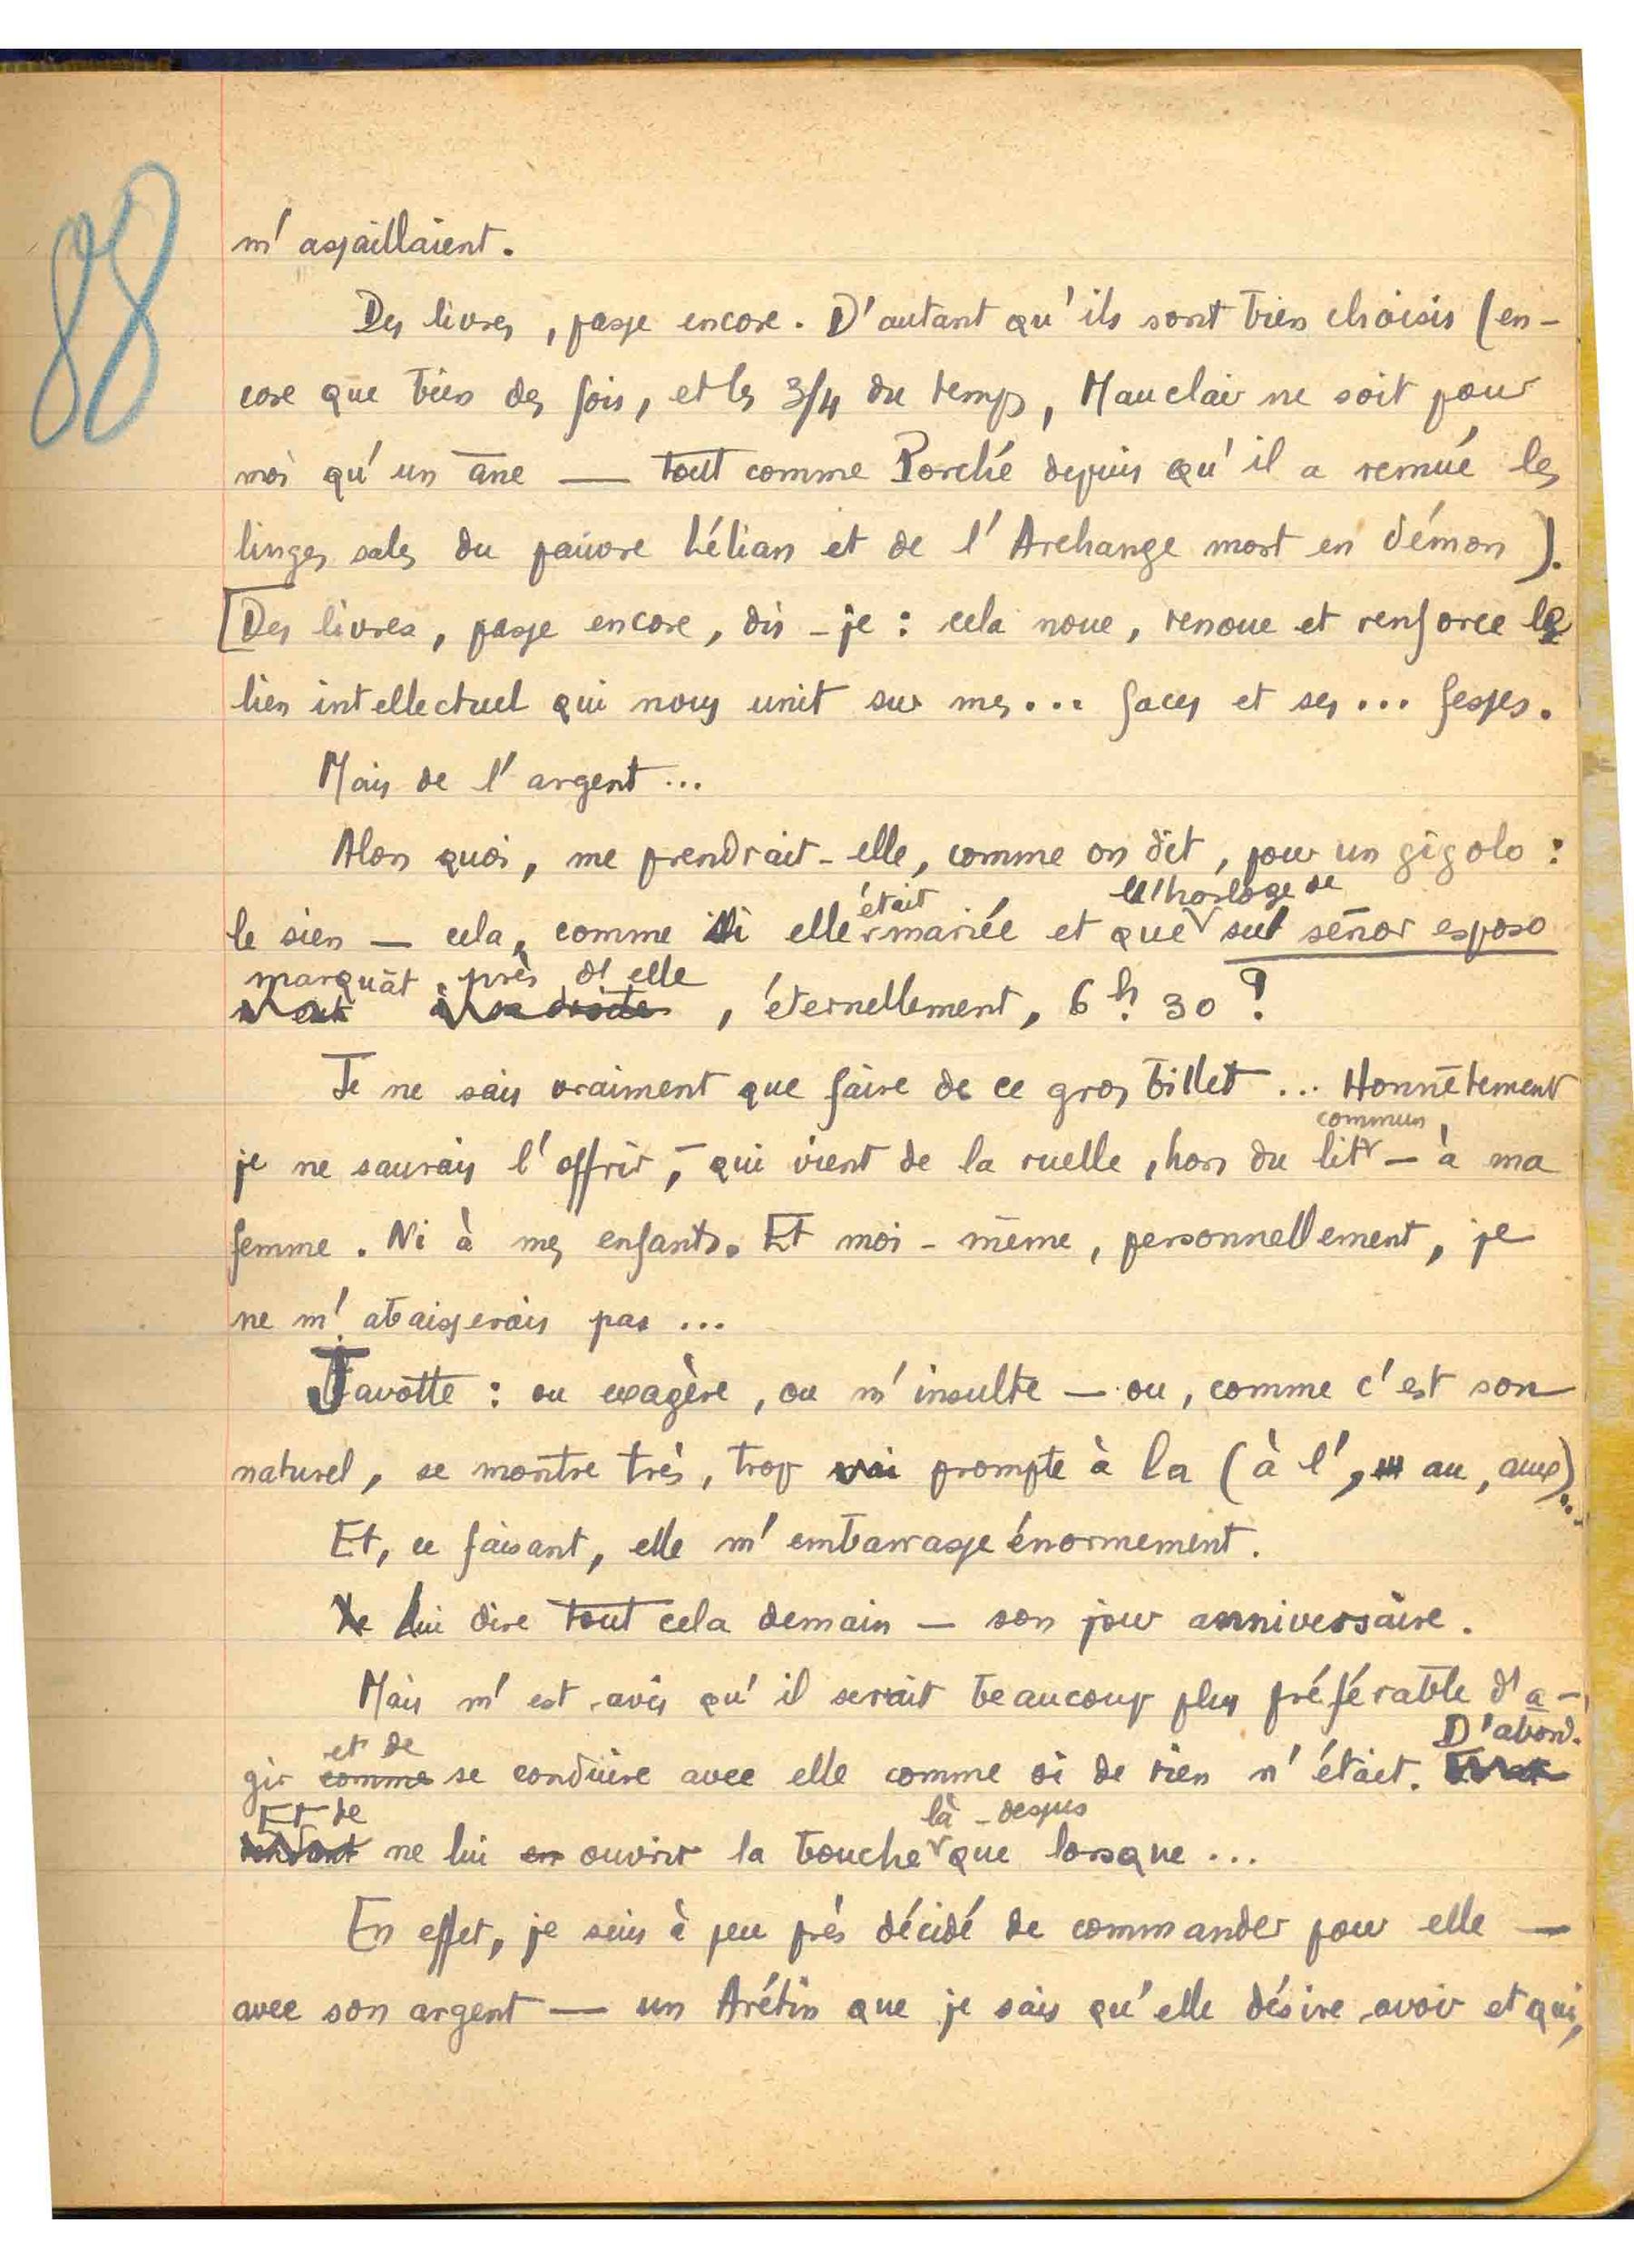 88
m' assaillaient.
Des livres, passe encore. D'autant qu'ils sont bien choisis (en-
core que bien des fois, et les 3/4 du temps, Mauclair ne soit pour
moi qu'un âne — tout comme Porché depuis qu'il a remué les
linges sales du pauvre Lélian et de l'Archange mort en démon).
[Des livres, passe encore, dis-je : cela noue, renoue et renforce le
lien intellectuel qui nous unit sur mes... faces et ses... fesses.
Mais de l'argent...
Alors quoi, me prendrait-elle, comme on dit, pour un gigolo :
était l'horloge de
le sien — cela, comme si elle mariée et que su señor esposo
marquât près d'elle
à sa droite, éternellement, 6 h. 30 ?
Je ne sais vraiment que faire de ce gros billet... Honnêtement
commun,
je ne saurais l'offrir, — qui vient de la ruelle, hors du lit — à ma
femme. Ni à mes enfants. Et moi-même, personnellement, je
ne m'abaisserais pas...
Javotte : ou exagère, ou m'insulte — ou, comme c'est son
naturel, se montre très, trop prompte à la (à l', au, aux)...
Et, ce faisant, elle m'embarrasse énormement.
Lui dire tout cela demain — son jour anniversaire.
Mais m'est avis qu'il serait beaucoup plus préférable d'a-
et de D'abord.
gir comme se conduire avec elle comme si de rien n'était.
Et de là-dessus
ne lui en ouvrir la bouche que lorsque...
En effet, je suis à peu près décidé de commander pour elle —
avec son argent — un Arétin que je sais qu'elle désire avoir et qui,